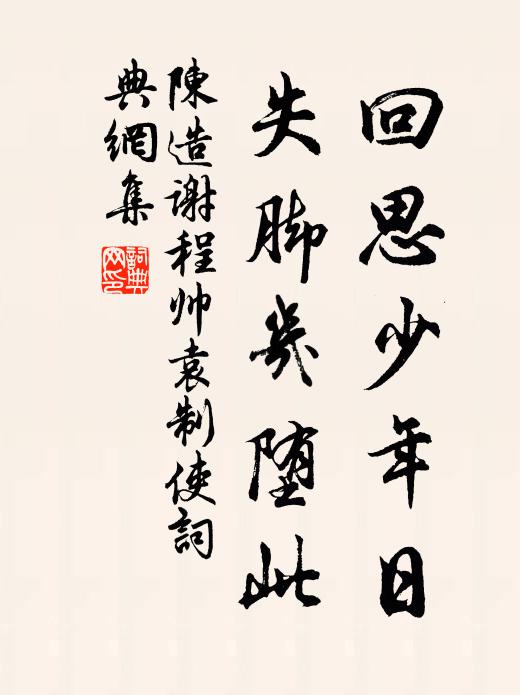 回思少年日
失脚幾堕此
陳造謝程帅袁制使詞
典網集
詞典
网印